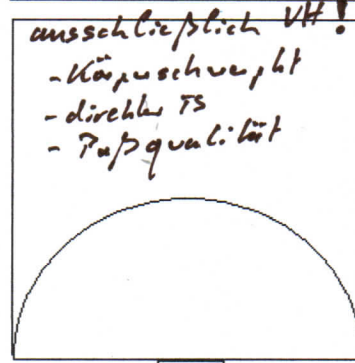 ausschließlich VH!
- Körperschwerpkt
- direkter TS
- Paßqualität